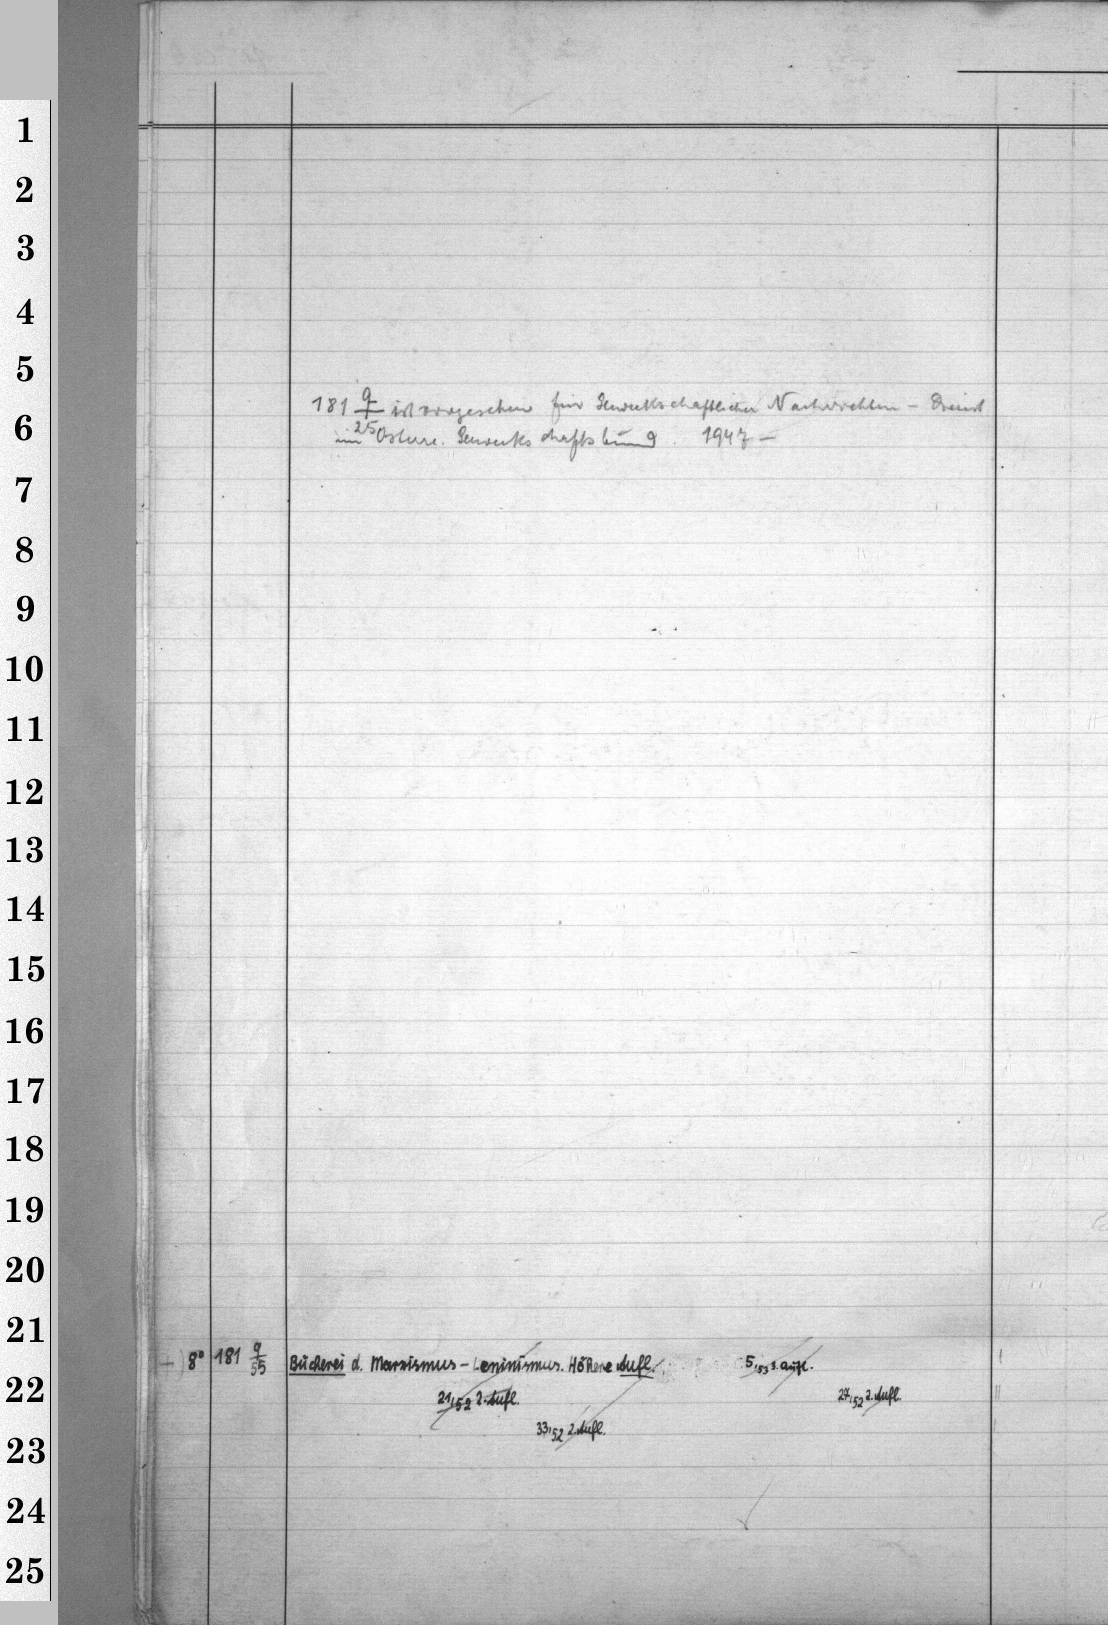 1
2
3
4
5
181 q/25 ist vorgesehen für Gewerkschaftlicher Nachrichten - Dienst
6
im Österr. Gewerkschaftsbund. 1947 -
7
8
9
10
11
12
13
14
15
16
17
18
19
20
21
8° 181 q/55 Bücherei d. Marxismus-Leninismus. Höhere Aufl. 5,53 3. Aufl.
22
21,52 2. Aufl. 27,52 2. Aufl.
33,52 2. Aufl.
23
24
25